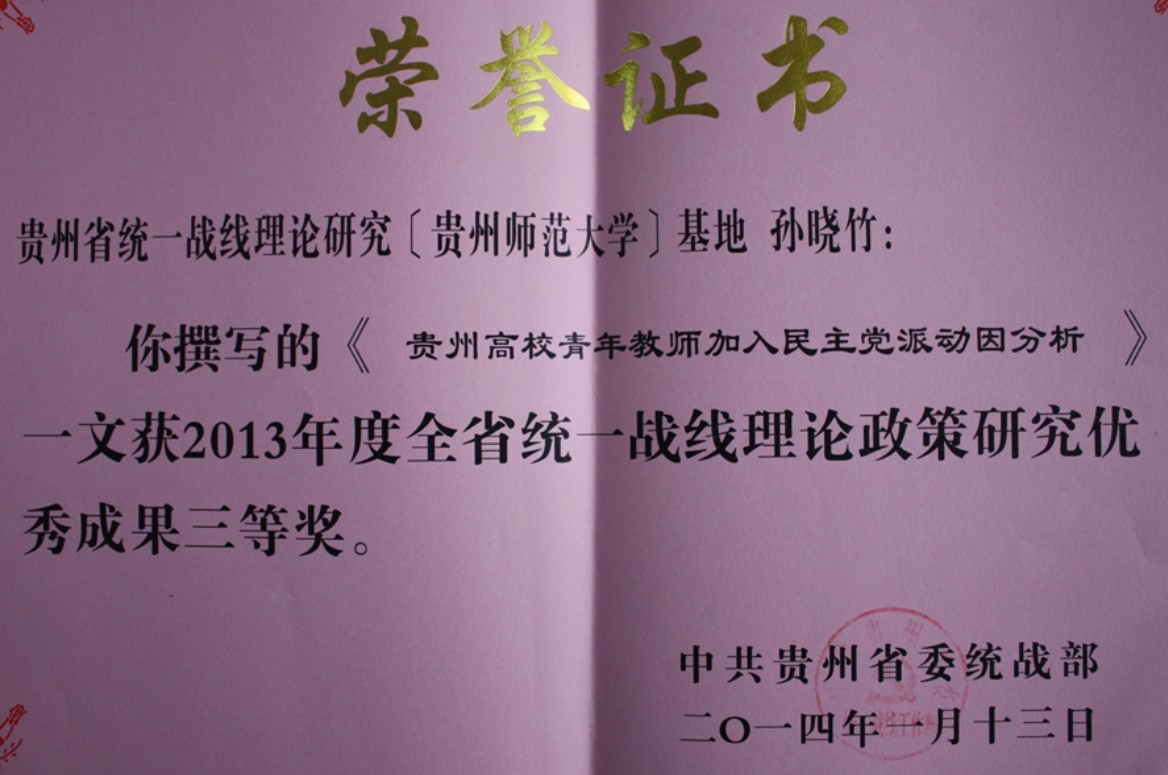 荣誉证书
贵州省统一战线理论研究〔贵州师范大学〕基地 孙晓竹：
你撰写的《 贵州高校青年教师加入民主党派动因分析 》
一文获2013年度全省统一战线理论政策研究优
秀成果三等奖。
中共贵州省委统战部
二〇一四年一月十三日